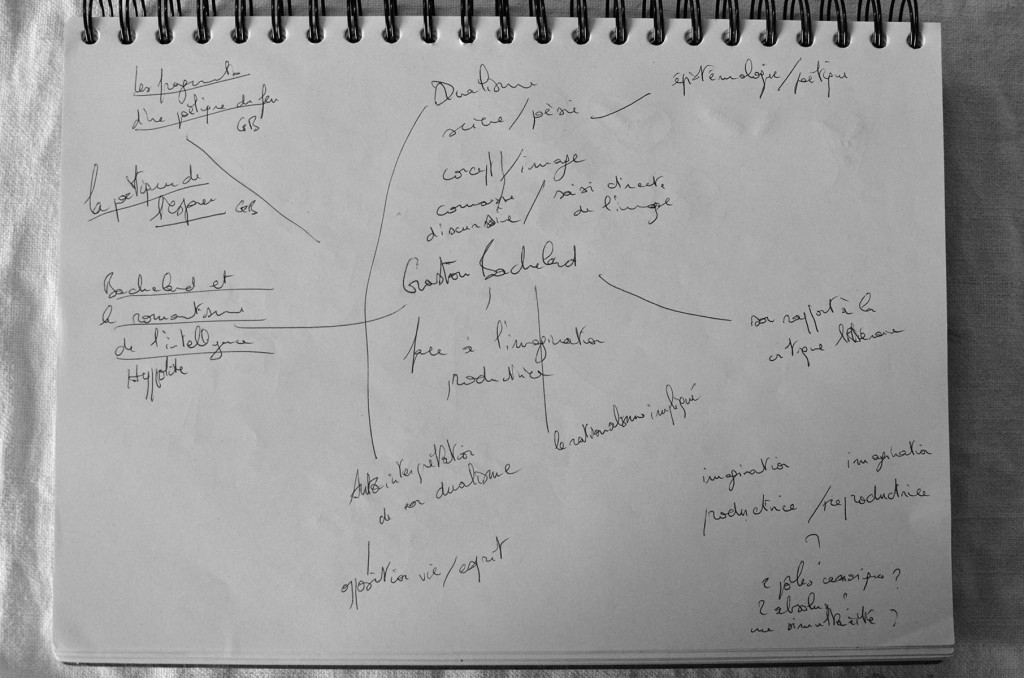 Les fragments
d'une poétique du feu
GB
La poétique de
l'espace GB
Bachelard et
le romantisme
de l'intelligence
Hyppolite
Dualisme
science/poésie
épistémologie/poétique
concept/image
discursive / saisi directe
de l'image
Gaston Bachelard
face à l'imagination
productrice
son rapport à la
critique littéraire
le rationalisme impliqué
Auto interprétation
de son dualisme
opposition vie/esprit
imagination imagination
productrice /reproductrice
?
2 pôles ?
2 absolus ?
une simultanéité ?